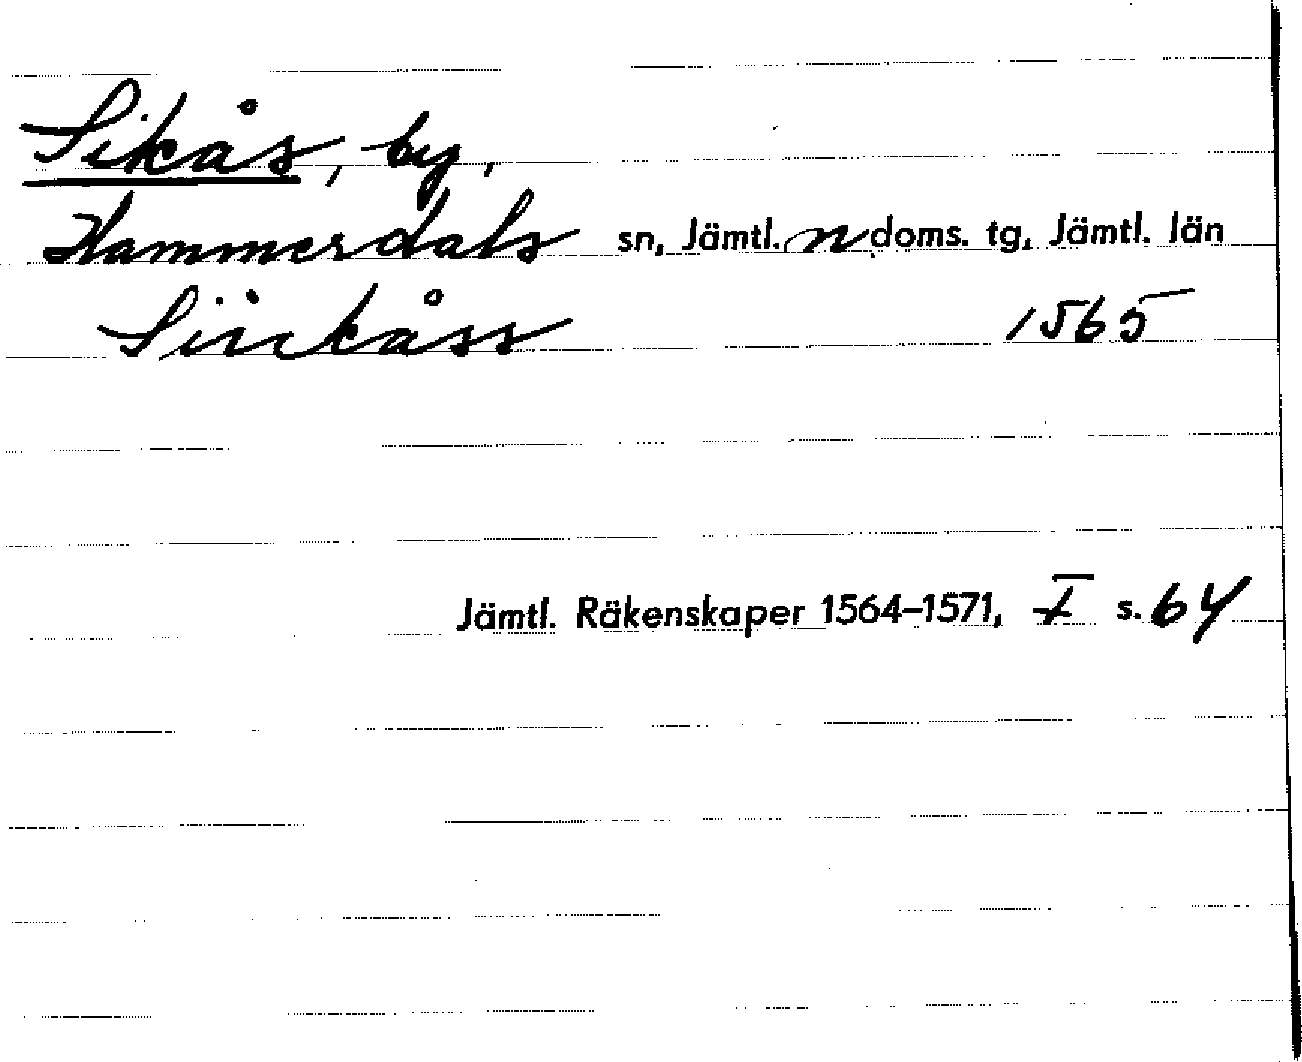 Sikås, by,
Hammerdals sn, Jämtl. n doms. tg, Jämtl. län
Siickåss 1565
Jämtl. Räkenskaper 1564–1571, I s. 64